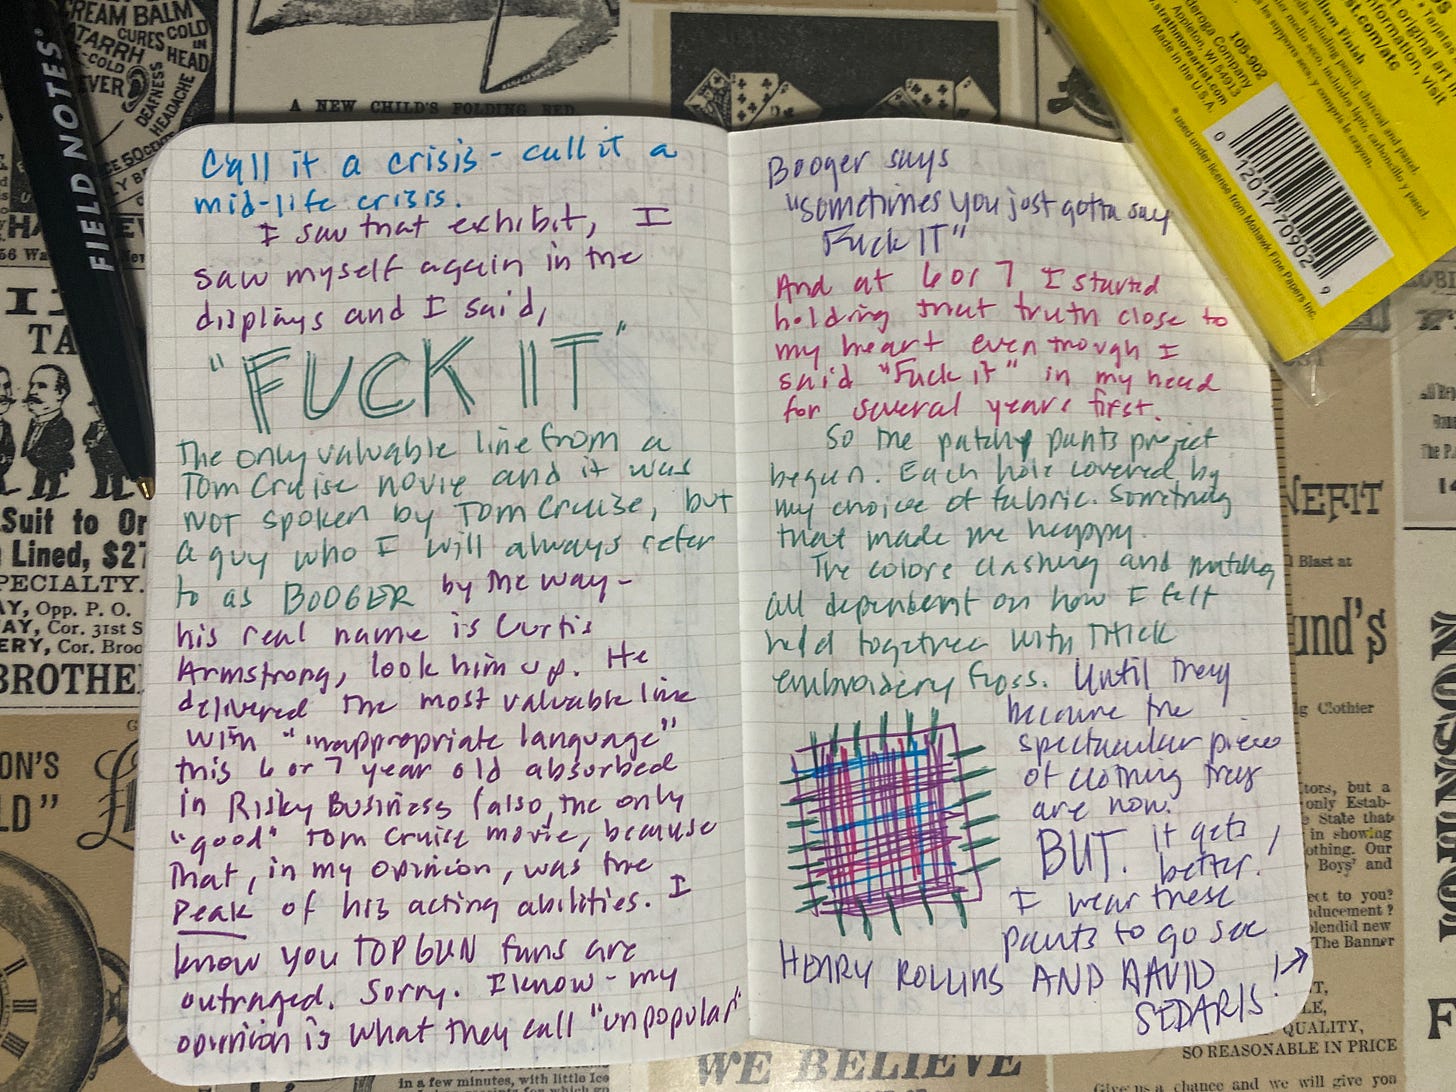 Call it a crisis - call it a
mid-life crisis.
I saw that exhibit, I
saw myself again in the
displays and I said,
"FUCK IT"
The only valuable line from a
Tom Cruise movie and it was
not spoken by Tom Cruise, but
a guy who I will always refer
to as BOOGER by the way-
his real name is Curtis
Armstrong, look him up. He
delivered the most valuable line
with "inappropriate language"
this 6 or 7 year old absorbed
in Risky Business (also, the only
"good" Tom Cruise movie, because
that, in my opinion, was the
Peak of his acting abilities. I
know you TOP GUN fans are
outraged. Sorry. I know - my
opinion is what they call "unpopular"
Booger says
"sometimes you just gotta say
Fuck IT"
And at 6 or 7 I started
holding that truth close to
my heart even though I
said "Fuck it" in my head
for several years first.
So the patchy pants project
began. Each hole covered by
my choice of fabric. Something
that made me happy.
The colors clashing and matching
all dependent on how I felt
held together with THICK
embroidery floss. Until they
became the
spectacular piece
of clothing they
are now.
BUT. it gets
better!
I wear these
pants to go see
HENRY ROLLINS AND DAVID
SEDARIS!
FIELD NOTES
CREAM BALM
CURES COLD
IN
HEAD
DEAFNESS
HEADACHE
50 CENTS
A NEW CHILD'S FOLDING BED
Suit to Or
Lined, $27
SPECIALTY.
Opp. P. O.
Cor. 31st S
Cor. Broo
BROTHE
105-902
Appleton, WI 54913
www.strathmoreartist.com
Made in the U.S.A.
* used under license from Mohawk Fine Papers Inc.
0 12017 70902 9
NEFIT
Blast at
und's
Clothier
tors, but a
only Estab-
State that
in showing
othing. Our
Boys' and
ect to you?
ducement?
lendid new
The Banner
QUALITY,
SO REASONABLE IN PRICE
Give us a chance and we will give you
WE BELIEVE
in a few minutes, with little Ice